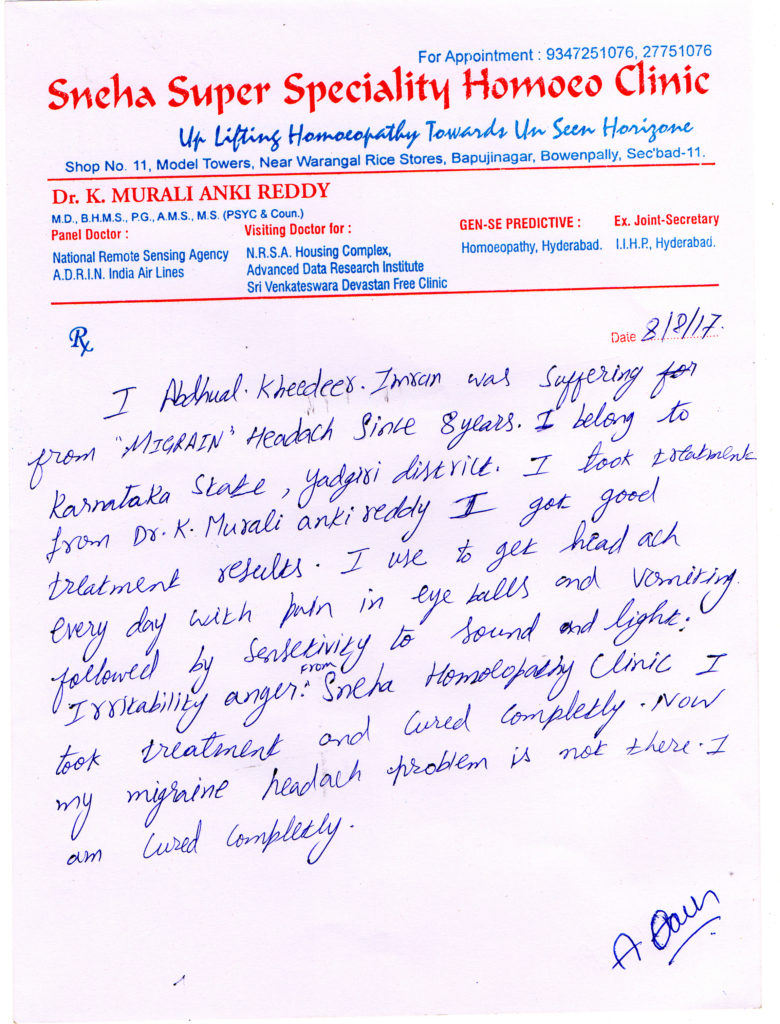 For Appointment : 9347251076, 27751076
Sneha Super Speciality Homoeo Clinic
Up Lifting Homoeopathy Towards Un Seen Horizone
Shop No. 11, Model Towers, Near Warangal Rice Stores, Bapujinagar, Bowenpally, Sec'bad-11.
Dr. K. MURALI ANKI REDDY
M.D., B.H.M.S., P.G., A.M.S., M.S. (PSYC & Coun.)
Panel Doctor :
National Remote Sensing Agency
A.D.R.I.N. India Air Lines
Visiting Doctor for :
N.R.S.A. Housing Complex,
Advanced Data Research Institute
Sri Venkateswara Devastan Free Clinic
GEN-SE PREDICTIVE :
Homoeopathy, Hyderabad.
Ex. Joint-Secretary
I.I.H.P., Hyderabad.
Rx
Date 8/8/17.
I Abdhual. Kheedeer. Imran was suffering for
from "MIGRAIN" Headach Since 8years. I belong to
Karnataka State, yadgiri district. I took treatment
from Dr. K. Murali anki reddy I got good
treatment results. I use to get head ach
every day with pain in eye balls and vomiting.
followed by sensetivity to sound and light;
Irritability anger. from Sneha Homoeopathy Clinic I
took treatment and cured completly. Now
my migraine headach problem is not there. I
am cured completly.